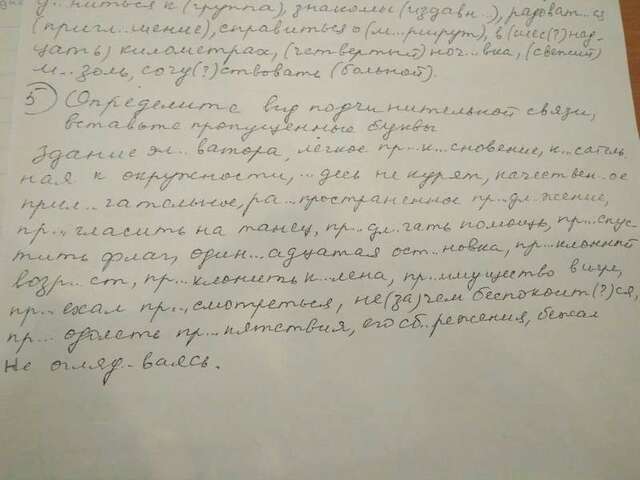 д..ниться к (группа), знакомы (издавн..), радоват..ся
(пригл..шение), справиться о (м..ршрут), в (шес(?)над-
цать) километрах, (четвертый) ноч..вка, (свежий)
м..золь, сочу(?)ствовать (больной).
5 Определите вид подчинительной связи,
вставьте пропущенные буквы
Здание эл..ватора, лёгкое пр..к...сновение, к...сатель
ная к окружности, ...десь не курят, качествен..ое
прил..гательное, ра...пространенное пр..дл..жение,
пр...гласить на танец, пр..дл..гать помощь, пр...спус-
тить флаг, один...адцатая ост...новка, пр...клонный
возр...ст, пр...клонить к...лена, пр..имущество в игре,
пр...ехал пр...смотреться, не(за)чем беспокоит(?)ся,
пр...одолеть пр...пятствия, его сб..режения, бежал
не огляд..ваясь.